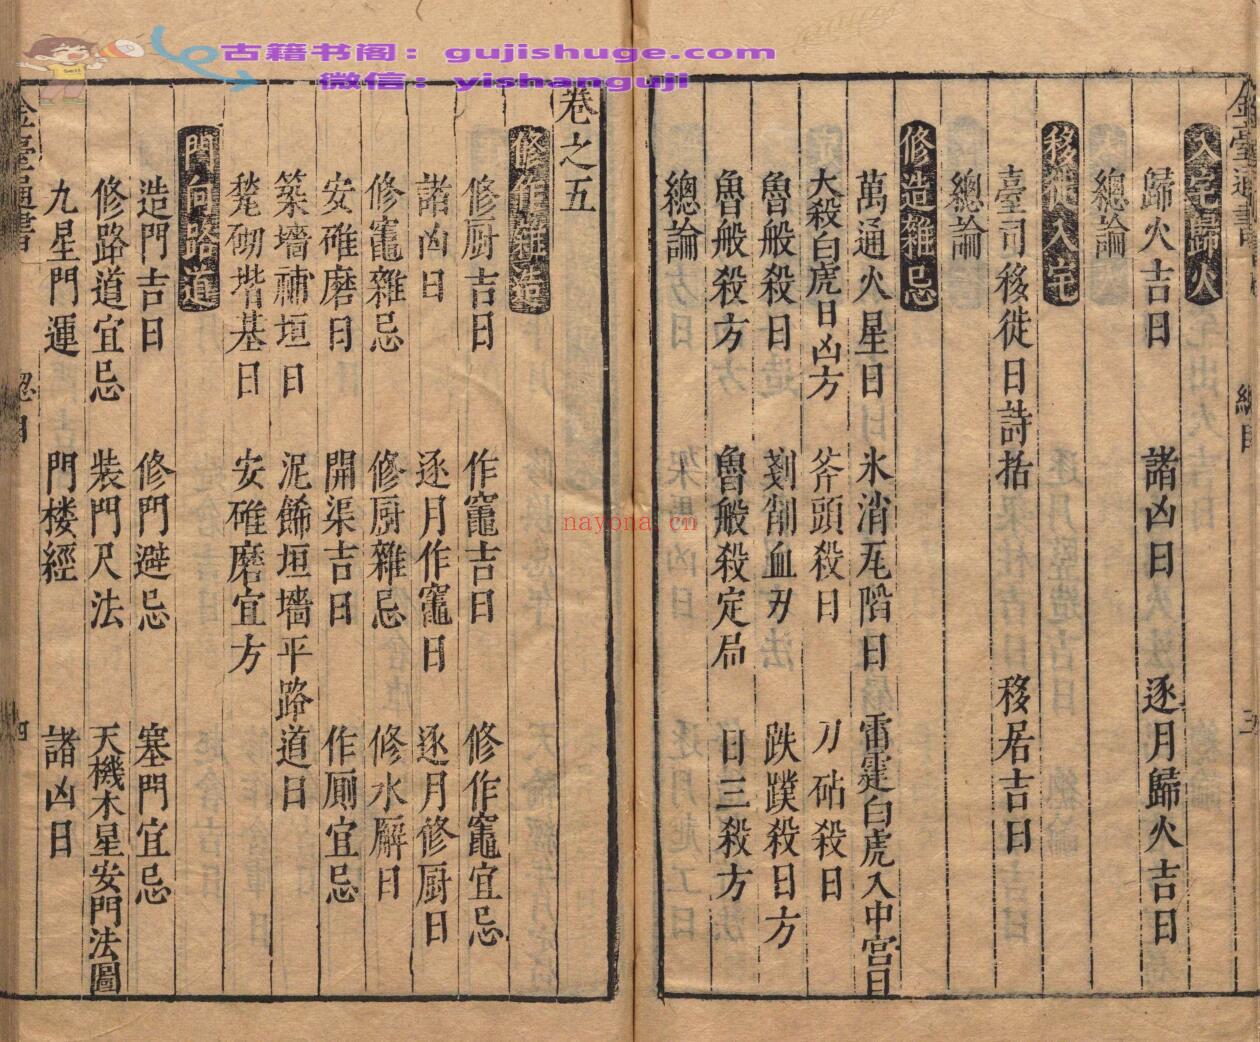 古籍书阁：gujishuge.com
微信：yishanguji
入宅歸火
歸火吉日 諸凶日 逐月歸火吉日
總論
移徙入宅
臺司移徙日詩括 移居吉日
總論
修造雜忌
萬通火星日 氷消瓦陷日 雷霆白虎入中宮日
大殺白虎日凶方 斧頭殺日 刀砧殺日
魯般殺日 剗削血刃 跌蹼殺日方
魯般殺方 魯般殺定局 日三殺方
總論
總目
卷之五
修作雜造
修厨吉日 作竈吉日 修作竈宜忌
諸凶日 逐月作竈日 逐月修厨日
修竈雜忌 修厨雜忌 修水㢙日
安碓磨日 開渠吉日 作厠宜忌
築墻補垣日 泥飾垣墻平路道日
甃砌堦基日 安碓磨宜方
門向路道
造門吉日 修門避忌 塞門宜忌
修路道宜忌 裝門尺法 天機木星安門法圖
九星門運 門楼經 諸凶日
nayona.cn